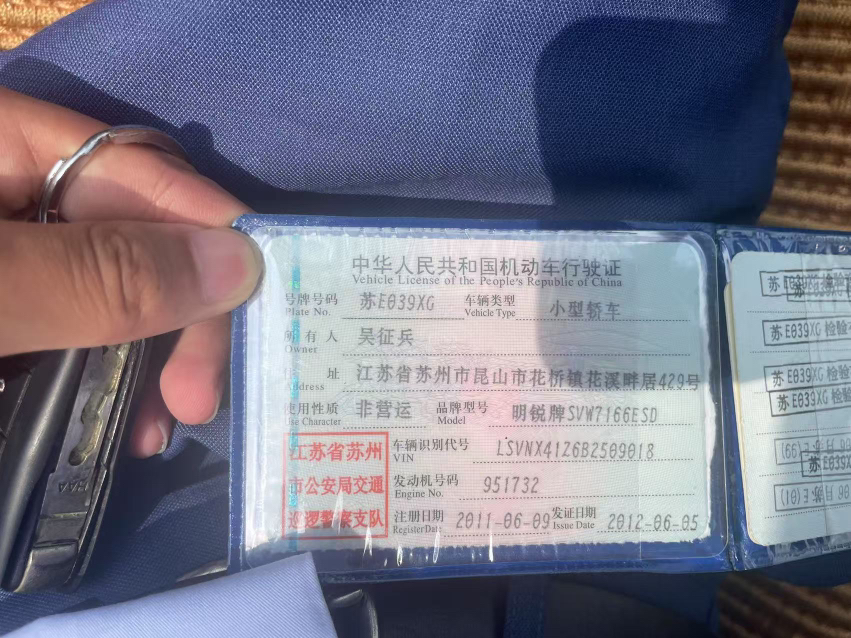 中华人民共和国机动车行驶证
Vehicle License of the People's Republic of China
号牌号码 苏E039XG 车辆类型 小型轿车
Plate No. Vehicle Type
所有人 吴征兵
Owner
住 址 江苏省苏州市昆山市花桥镇花溪畔居429号
Address
使用性质 非营运 品牌型号 明锐牌SVW7166ESD
Use Character Model
江苏省苏州
市公安局交通
巡逻警察支队
车辆识别代号 LSVNX41Z6B2509018
VIN
发动机号码 951732
Engine No.
注册日期 2011-06-09 发证日期 2012-06-05
Register Date Issue Date
苏E039XG 检验
苏E039XG 检验
苏E039XG